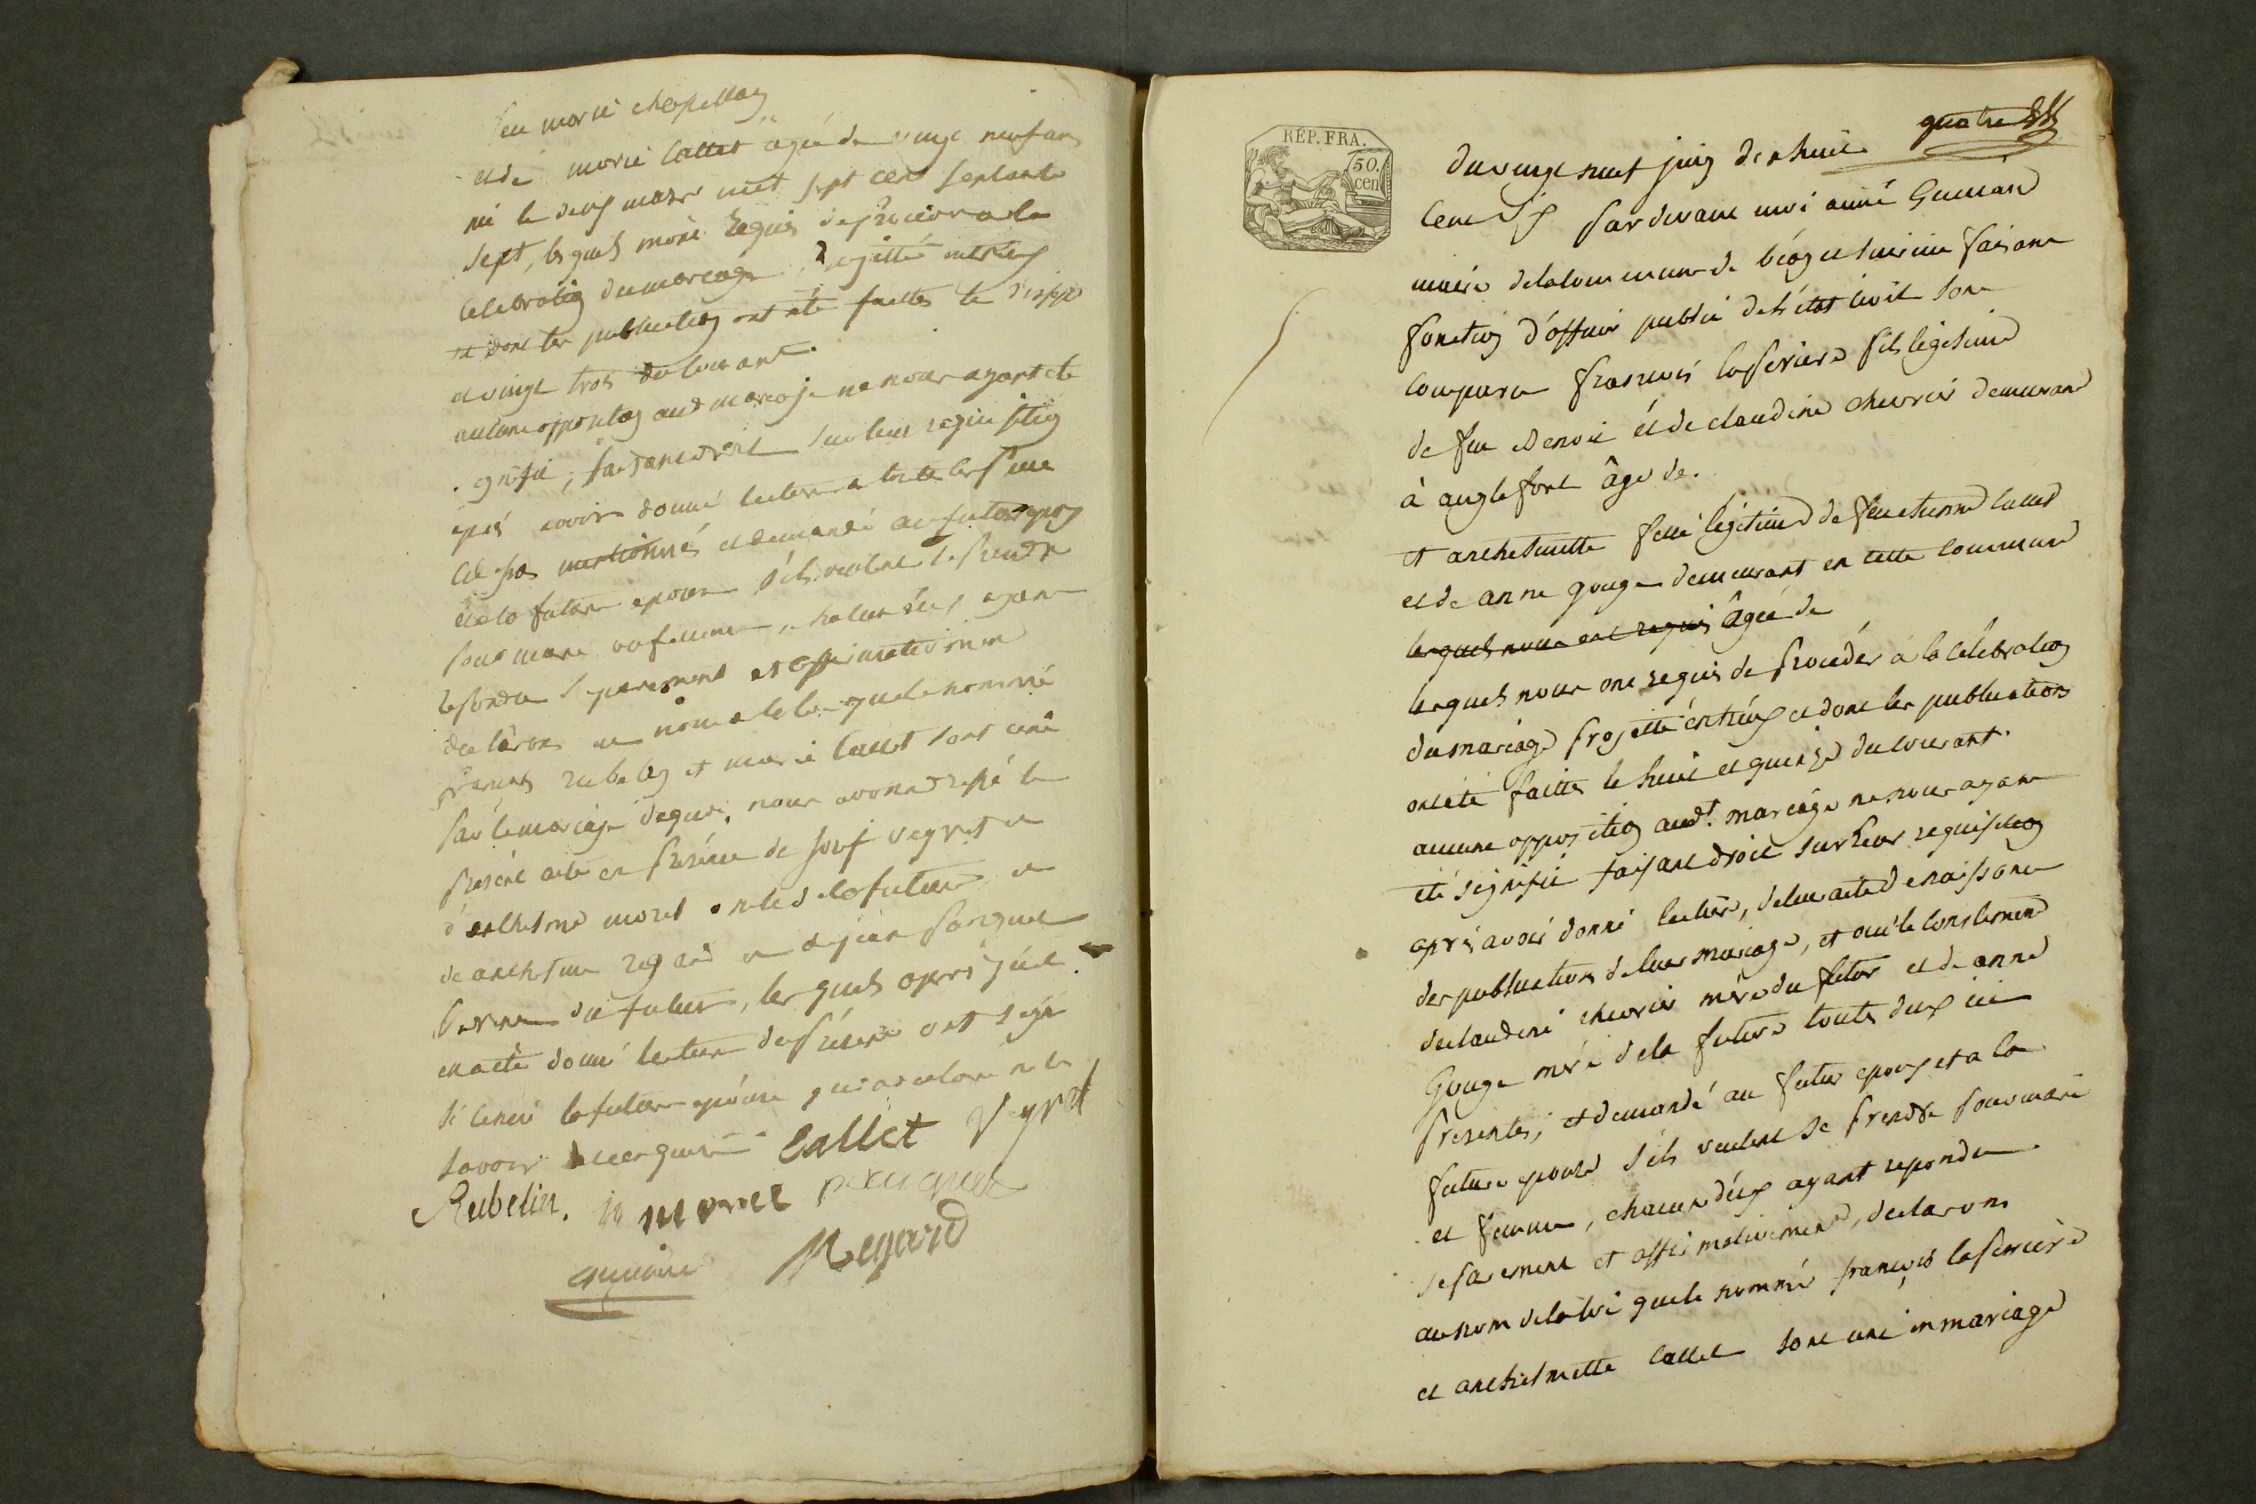 feu marie chapellon
et de marie Callet agée de vingt neuf ans
né le deux mars mil sept cent septante
sept, lesquels mont requis de proceder a la
celebration du mariage projetté entreux
et dont les publications ont été faittes le
et vingt trois du courant.
aucune opposition audt mariage ne nous ayant ete
signifié, faisant droit sur leur requisition
après avoir donné lecture a toutes les
mentionnés et demandé au futur epoux
et a la future epouse s'ils veulent se prendre
pour mari ou femme, chacun d'eux ayant
repondu separement et affirmativement
declarons au nom de la loi que le nommé
francois rubelin et marie Callet sont uni
par le mariage de quoi, nous avons dressé le
présent acte en présence de josef veyret
d'anthelme moret oncle de la future
de anthelme regard et de jean
du futur, les quels après qu'il
en a été donné lecture du présent ont signé
si ce n'est la future epouse qui a declaré ne le
savoir de ce enquise
Callet Veyret
Rubelin. moret
Regard
quatre
RÉP. FRA.
50.
cen
Du vingt neuf juin dix huit
cent six pardevant moi aimé Guinard
maire de la commune de béon et luirieu faisant
fonction d'officier public de l'état civil sont
comparu francois laperiere fils légitime
de feu Benoit et de claudine chevrier demeurant
à anglefort âgé de.
et anthelmette fille légitime de feu etienne Callet
et de anne gouge demeurant en cette commune
lesquels nous ont requis âgée de
lesquels nous ont requis de proceder à la célébration
du mariage projetté éntréux et dont les publications
ont été faittes le huit et quinze du courant.
aucune opposition audt. mariage ne nous ayant
été signifié faisant droit sur leur requisition
après avoir donné lecture, de leur acte de naissance
des publications de leur mariage, et ouï le consentement
de claudine chevrier mère du futur et de anne
Gouge mère de la future toutes deux ici
presentes, et demandé au futur epoux et a la
future epouse s'ils veulent se prendre pour mari
et femme, chacun d'éux ayant repondu
separement et affirmativement, declarons
au nom de la loi que le nommé françois laperriere
et anthelmette Callet sont uni en mariage